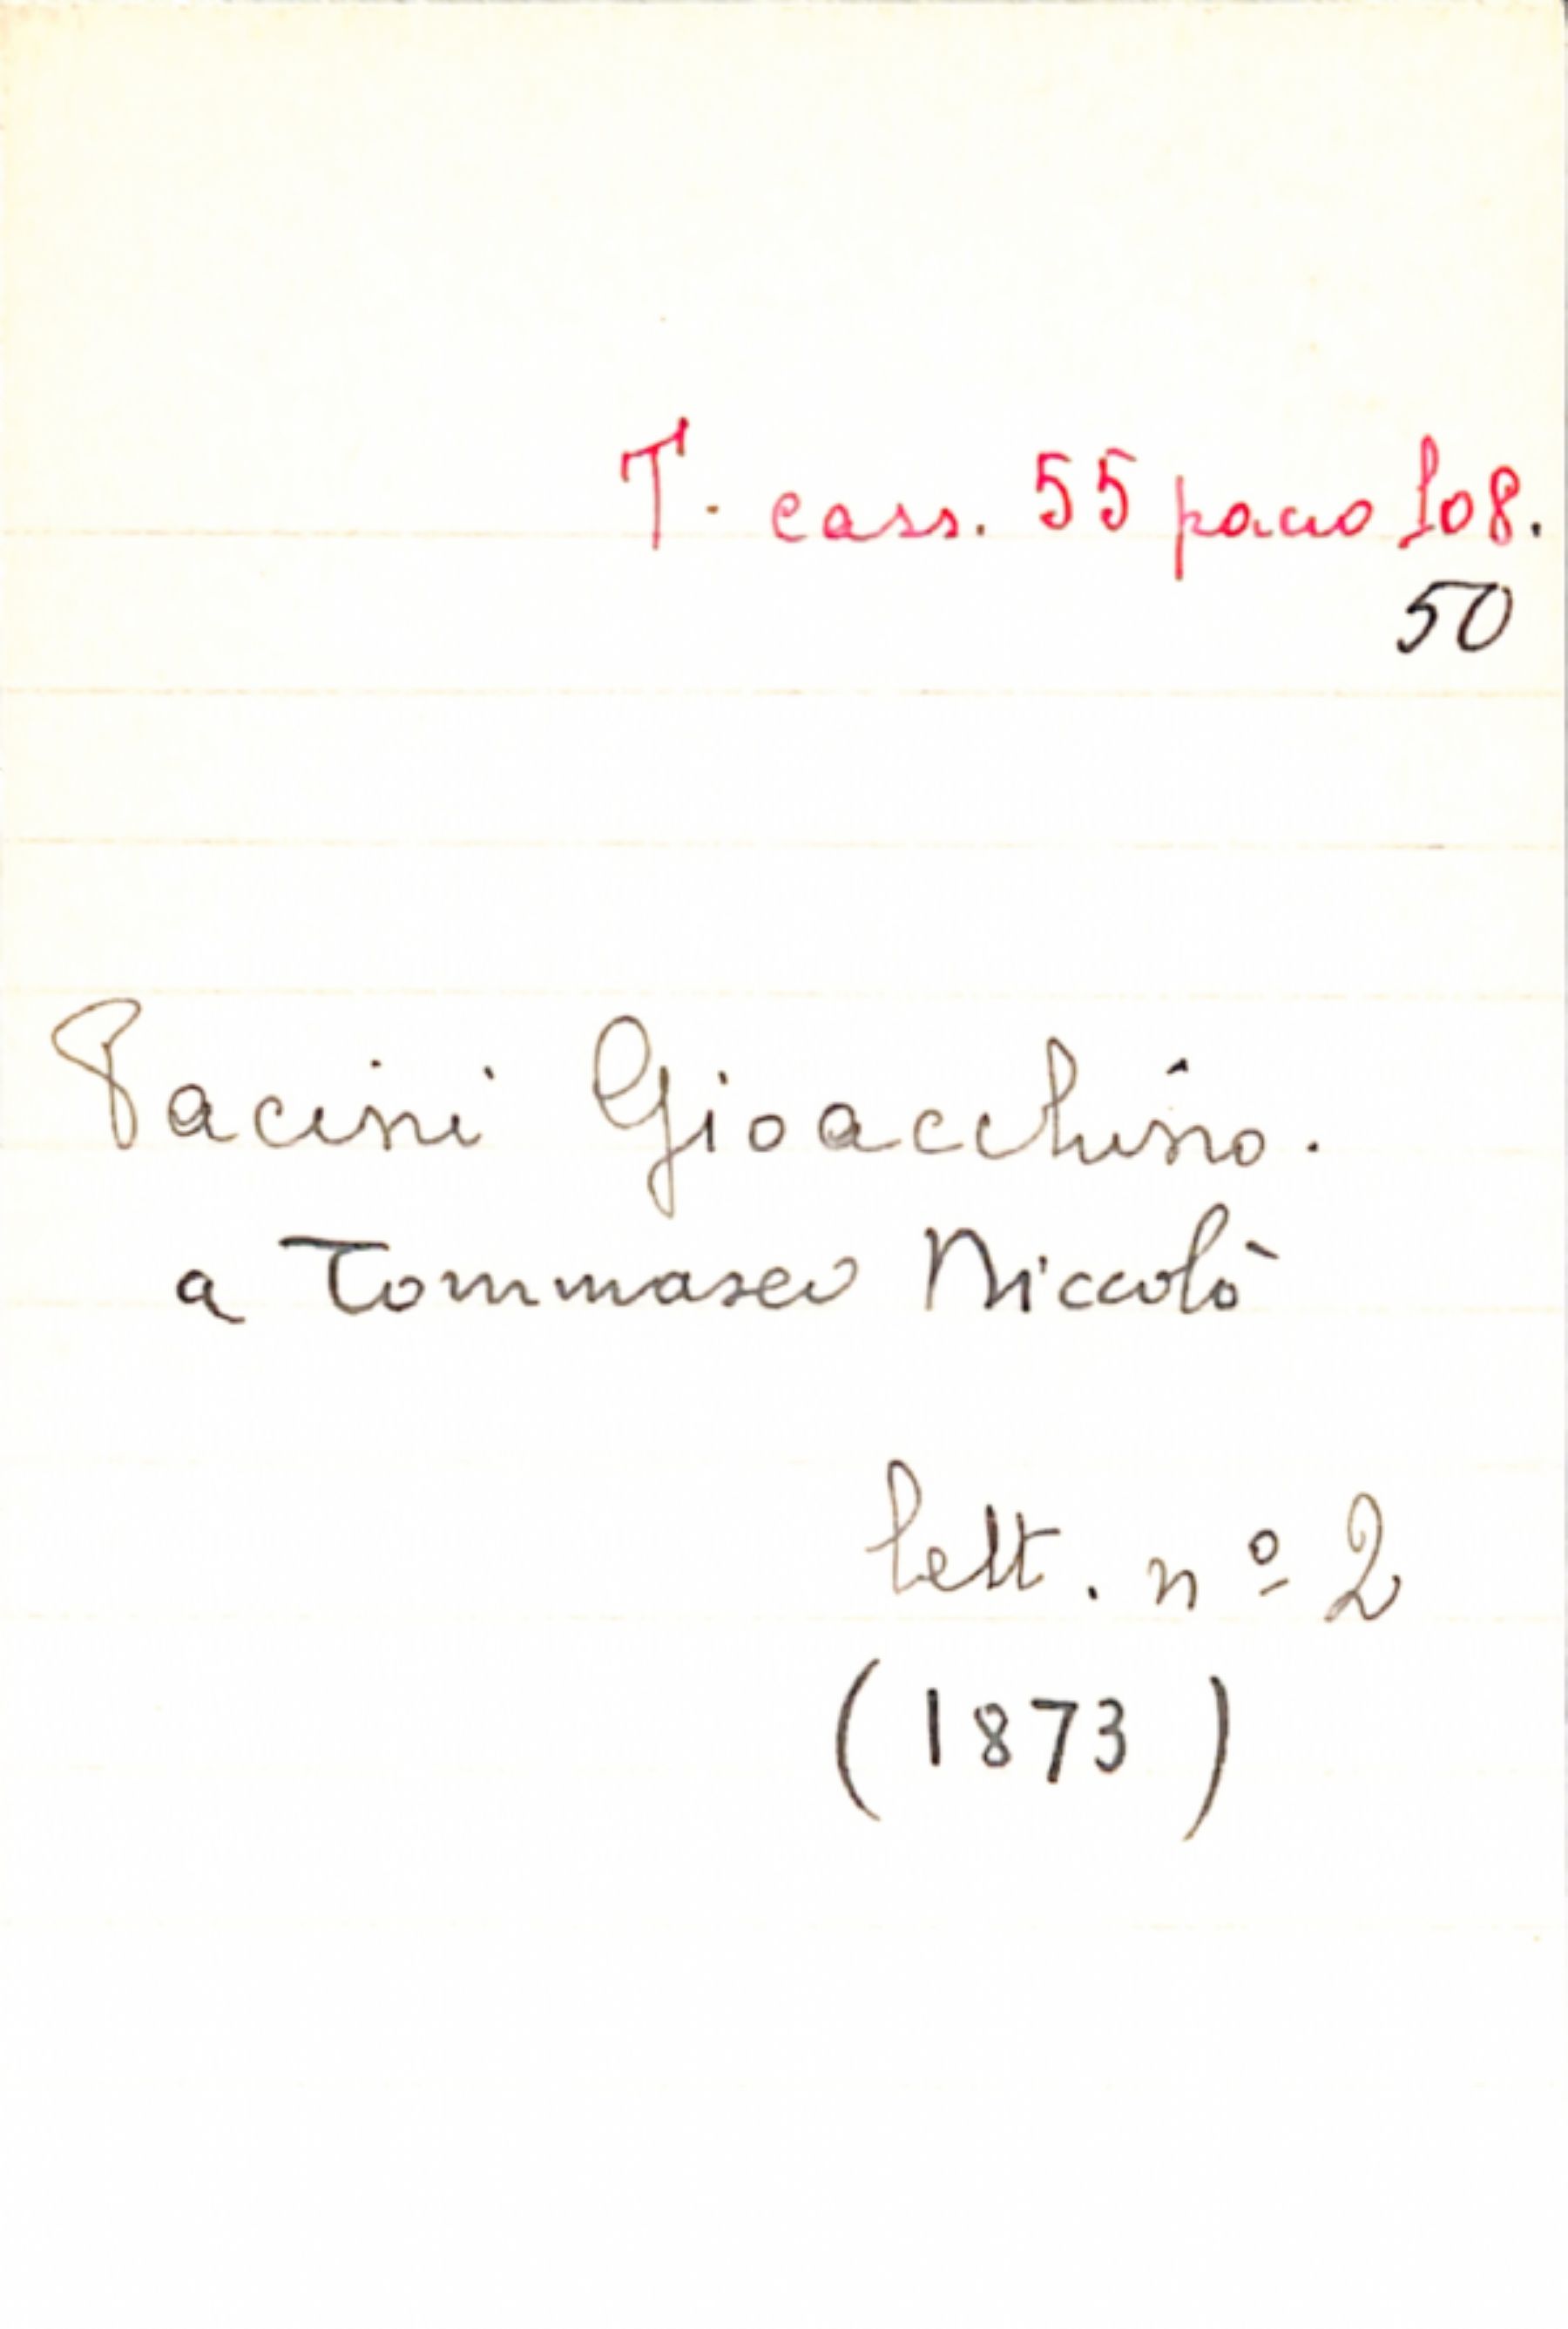 T. cass. 55 pacco 108.
50
Pacini Gioacchino.
a Tommaseo Niccolò
lett. nº 2
(1873)